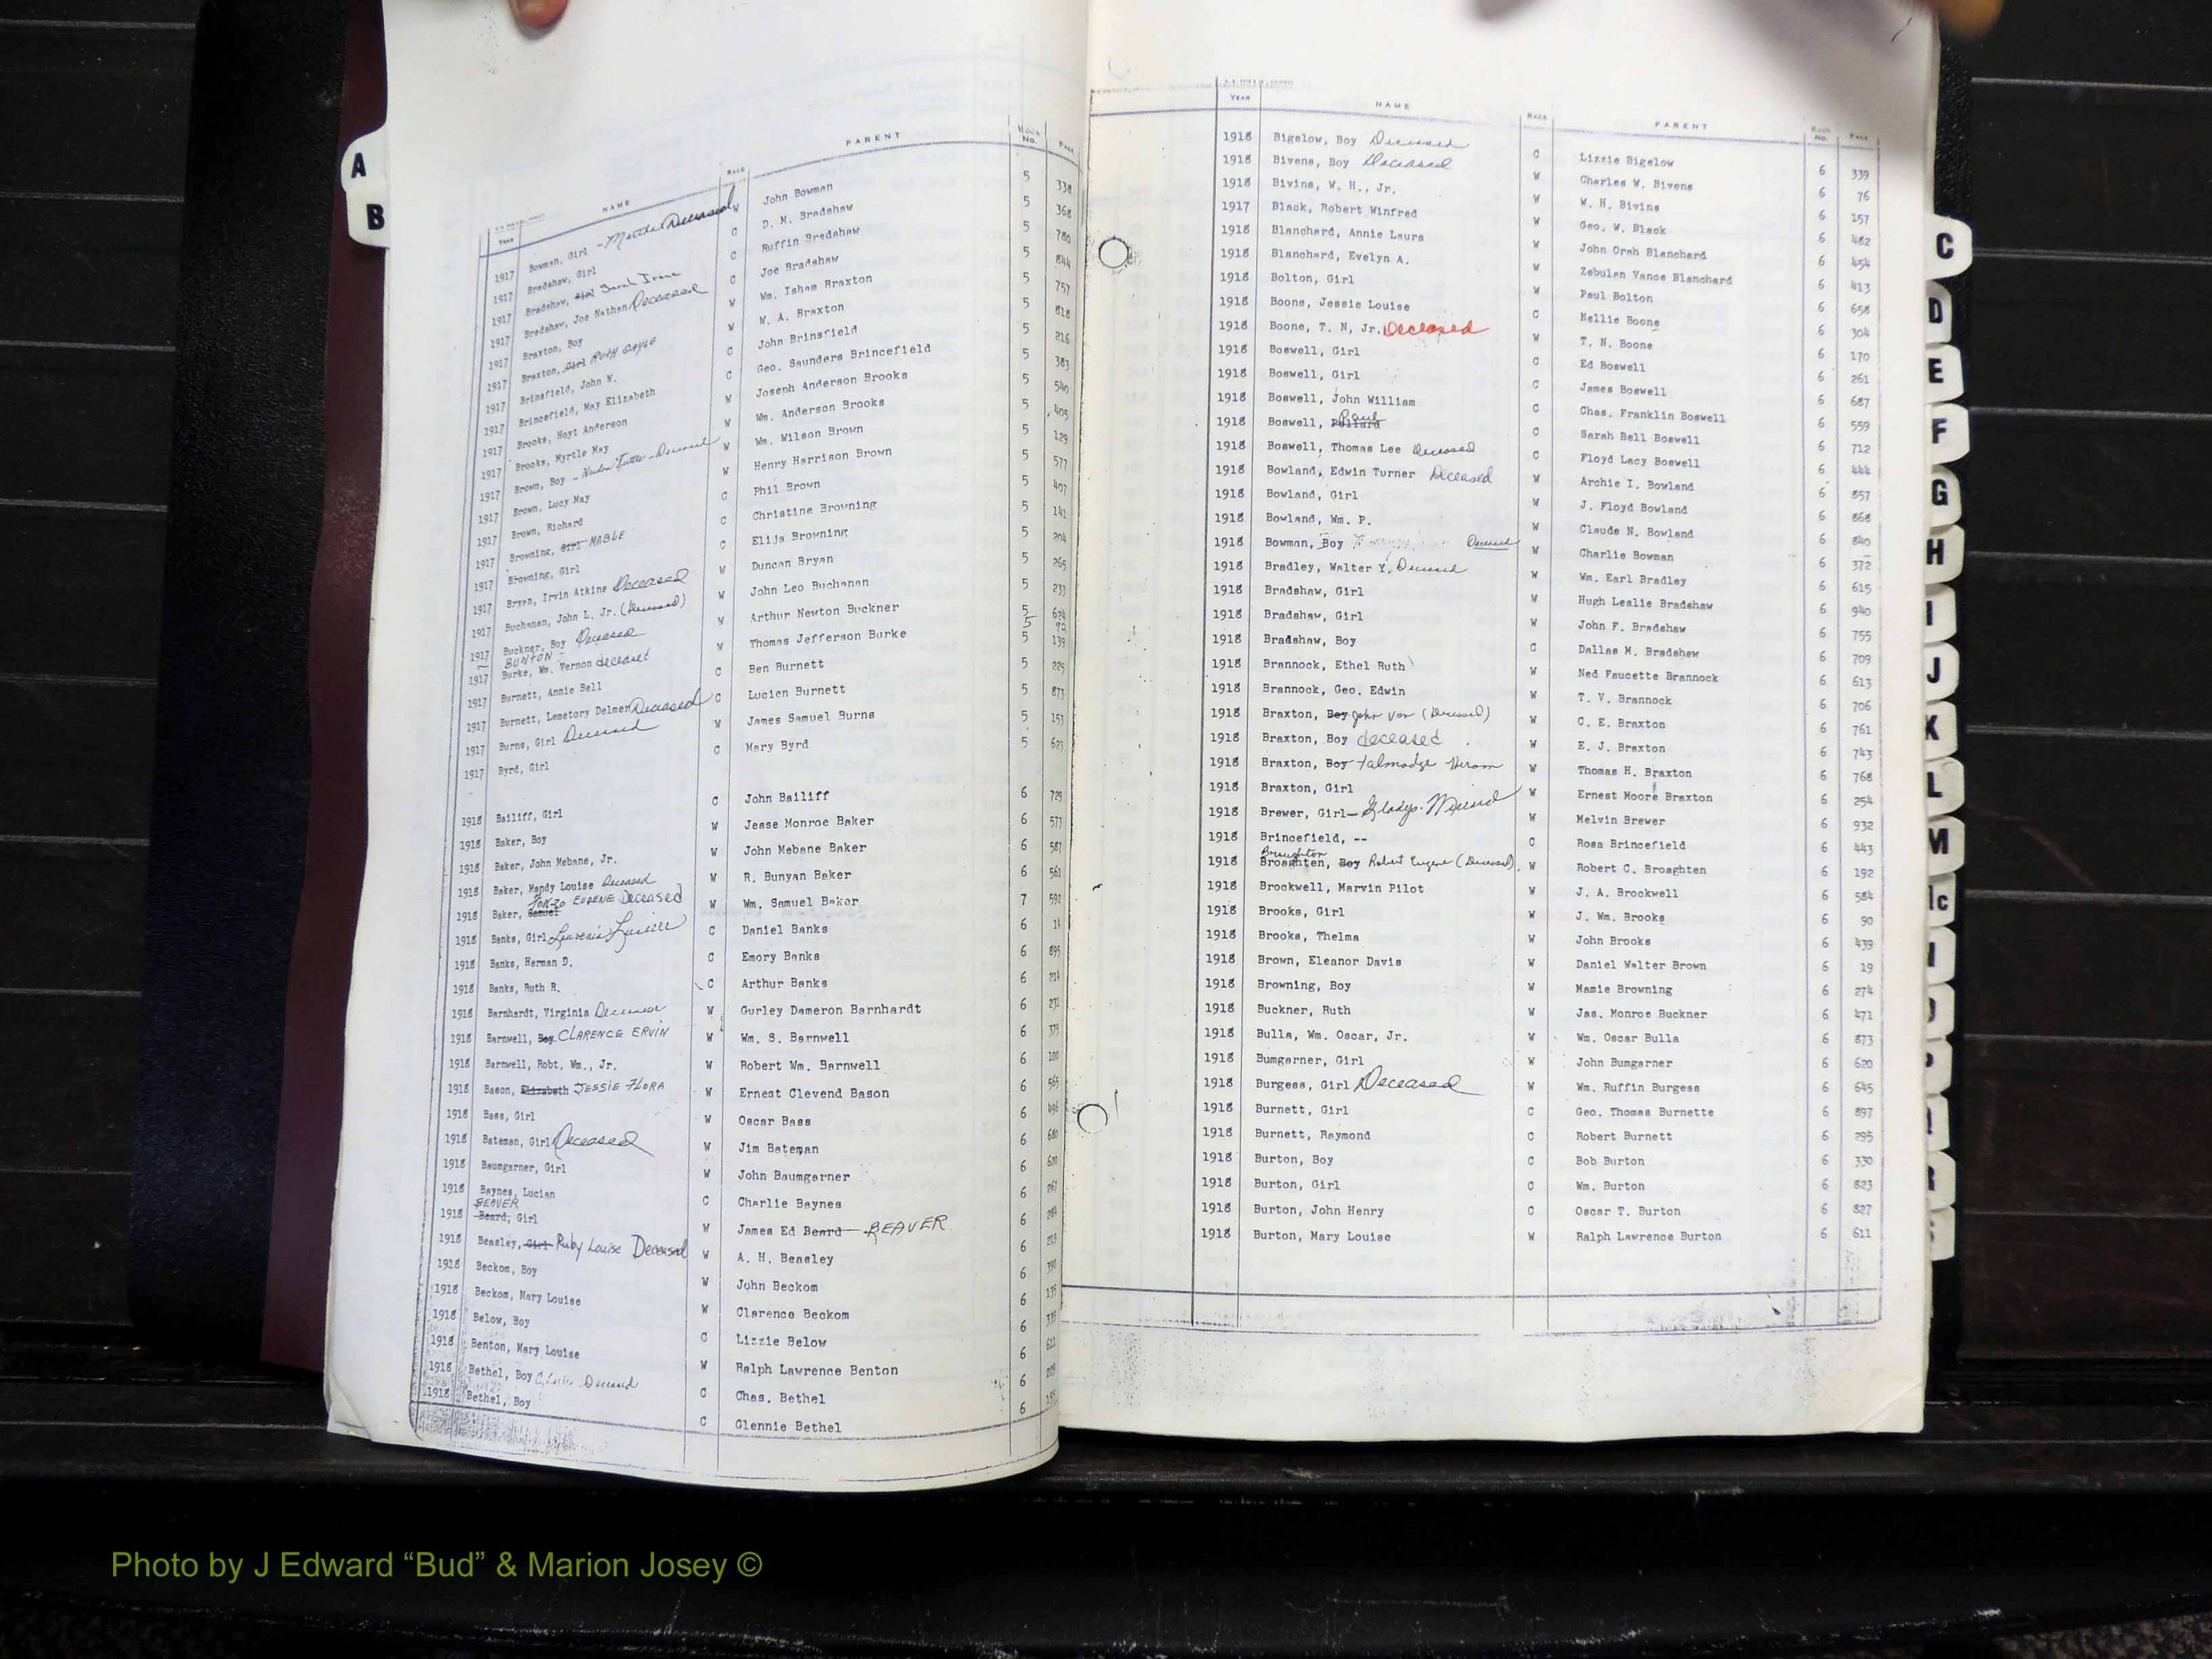 A
B
YEAR NAME RACE PARENT BOOK No. PAGE
1917 Bowman, Girl - Deceased W John Bowman 5 338
1917 Bradshaw, Girl C D. M. Bradshaw 5 368
1917 Bradshaw, Girl Sarah Irene C Ruffin Bradshaw 5 780
1917 Bradshaw, Joe Nathan Deceased C Joe Bradshaw 5 844
1917 Braxton, Boy W Wm. Isham Braxton 5 757
1917 Braxton, Girl RUTH GAYLE W W. A. Braxton 5 818
1917 Brinsfield, John W. C John Brinsfield 5 216
1917 Brincefield, May Elizabeth C Geo. Saunders Brincefield 5 383
1917 Brooks, Hoyt Anderson W Joseph Anderson Brooks 5 540
1917 Brooks, Myrtle May W Wm. Anderson Brooks 5 405
1917 Brown, Boy - Deceased W Wm. Wilson Brown 5 129
1917 Brown, Lucy May W Henry Harrison Brown 5 577
1917 Brown, Richard C Phil Brown 5 407
1917 Browning, Girl MABLE C Christine Browning 5 141
1917 Browning, Girl C Elija Browning 5 204
1917 Bryan, Irvin Atkins Deceased W Duncan Bryan 5 265
1917 Buchanan, John L. Jr. (Deceased) W John Leo Buchanan 5 233
1917 Buckner, Boy Deceased W Arthur Newton Buckner 5 624
BUNTON - 5 72
1917 Burke, Wm. Vernon deceased W Thomas Jefferson Burke 5 139
1917 Burnett, Annie Bell C Ben Burnett 5 225
1917 Burnett, Lemetory Delmen Deceased C Lucien Burnett 5 873
1917 Burns, Girl Deceased W James Samuel Burns 5 153
1917 Byrd, Girl C Mary Byrd 5 623
1918 Bailiff, Girl C John Bailiff 6 729
1918 Baker, Boy W Jesse Monroe Baker 6 573
1918 Baker, John Mebane, Jr. W John Mebane Baker 6 587
1918 Baker, Mandy Louise Deceased W R. Bunyan Baker 6 561
1918 Baker, Samuel EUGENE Deceased W Wm. Samuel Baker 7 592
1918 Banks, Girl C Daniel Banks 6 14
1918 Banks, Herman D. C Emory Banks 6 895
1918 Banks, Ruth R. C Arthur Banks 6 214
1918 Barnhardt, Virginia Deceased W Gurley Dameron Barnhardt 6 231
1918 Barnwell, Boy CLARENCE ERVIN W Wm. S. Barnwell 6 375
1918 Barnwell, Robt. Wm., Jr. W Robert Wm. Barnwell 6 100
1918 Bason, Elizabeth JESSIE FLORA W Ernest Clevend Bason 6 565
1918 Bass, Girl W Oscar Bass 6 496
1918 Bateman, Girl Deceased W Jim Bateman 6 680
1918 Baumgarner, Girl W John Baumgarner 6 620
1918 Baynes, Lucian C Charlie Baynes 6 267
BEAVER
1918 Beard, Girl W James Ed Beard BEAVER 6
1918 Beasley, Girl Ruby Louise Deceased W A. H. Beasley 6
1918 Beckom, Boy W John Beckom 6 390
1918 Beckom, Mary Louise W Clarence Beckom 6 135
1918 Below, Boy C Lizzie Below 6 339
1918 Benton, Mary Louise W Ralph Lawrence Benton 6 611
1918 Bethel, Boy Deceased C Chas. Bethel 6
1918 Bethel, Boy C Glennie Bethel 6
YEAR NAME RACE PARENT BOOK No. PAGE
1918 Bigelow, Boy Deceased C Lizzie Bigelow 6 339
1918 Bivens, Boy Deceased W Charles W. Bivens 6 76
1918 Bivins, W. H., Jr. W W. H. Bivins 6 157
1917 Black, Robert Winfred W Geo. W. Black 6 482
1918 Blanchard, Annie Laura W John Orah Blanchard 6 454
1918 Blanchard, Evelyn A. W Zebulan Vance Blanchard 6 413
1918 Bolton, Girl W Paul Bolton 6 658
1918 Boone, Jessie Louise C Nellie Boone 6 304
1918 Boone, T. N, Jr. Deceased W T. N. Boone 6 170
1918 Boswell, Girl C Ed Boswell 6 261
1918 Boswell, Girl C James Boswell 6 687
1918 Boswell, John William C Chas. Franklin Boswell 6 559
1918 Boswell, Pollard Paul C Sarah Bell Boswell 6 712
1918 Boswell, Thomas Lee Deceased C Floyd Lacy Boswell 6 444
1918 Bowland, Edwin Turner Deceased W Archie I. Bowland 6 857
1918 Bowland, Girl W J. Floyd Bowland 6 868
1918 Bowland, Wm. P. W Claude N. Bowland 6 840
1918 Bowman, Boy Deceased W Charlie Bowman 6 372
1918 Bradley, Walter Y. Deceased W Wm. Earl Bradley 6 615
1918 Bradshaw, Girl W Hugh Leslie Bradshaw 6 940
1918 Bradshaw, Girl W John F. Bradshaw 6 755
1918 Bradshaw, Boy C Dallas M. Bradshaw 6 709
1918 Brannock, Ethel Ruth W Ned Faucette Brannock 6 613
1918 Brannock, Geo. Edwin W T. V. Brannock 6 706
1918 Braxton, Boy John Von (Deceased) W C. E. Braxton 6 761
1918 Braxton, Boy deceased W E. J. Braxton 6 743
1918 Braxton, Boy Talmadge Hiram W Thomas H. Braxton 6 768
1918 Braxton, Girl W Ernest Moore Braxton 6 254
1918 Brewer, Girl - Gladys W Melvin Brewer 6 932
1918 Brincefield, -- C Rosa Brincefield 6 443
Broughton
1918 Broaghten, Boy Robert Eugene (Deceased) W Robert C. Broaghten 6 192
1918 Brockwell, Marvin Pilot W J. A. Brockwell 6 584
1918 Brooks, Girl W J. Wm. Brooks 6 90
1918 Brooks, Thelma W John Brooks 6 439
1918 Brown, Eleanor Davis W Daniel Walter Brown 6 19
1918 Browning, Boy W Mamie Browning 6 274
1918 Buckner, Ruth W Jas. Monroe Buckner 6 471
1918 Bulla, Wm. Oscar, Jr. W Wm. Oscar Bulla 6 873
1918 Bumgarner, Girl W John Bumgarner 6 620
1918 Burgess, Girl Deceased W Wm. Ruffin Burgess 6 645
1918 Burnett, Girl C Geo. Thomas Burnette 6 897
1918 Burnett, Raymond C Robert Burnett 6 295
1918 Burton, Boy C Bob Burton 6 330
1918 Burton, Girl C Wm. Burton 6 823
1918 Burton, John Henry C Oscar T. Burton 6 827
1918 Burton, Mary Louise W Ralph Lawrence Burton 6 611
C
D
E
F
G
H
I
J
K
L
M
Mc
Photo by J Edward “Bud” & Marion Josey ©